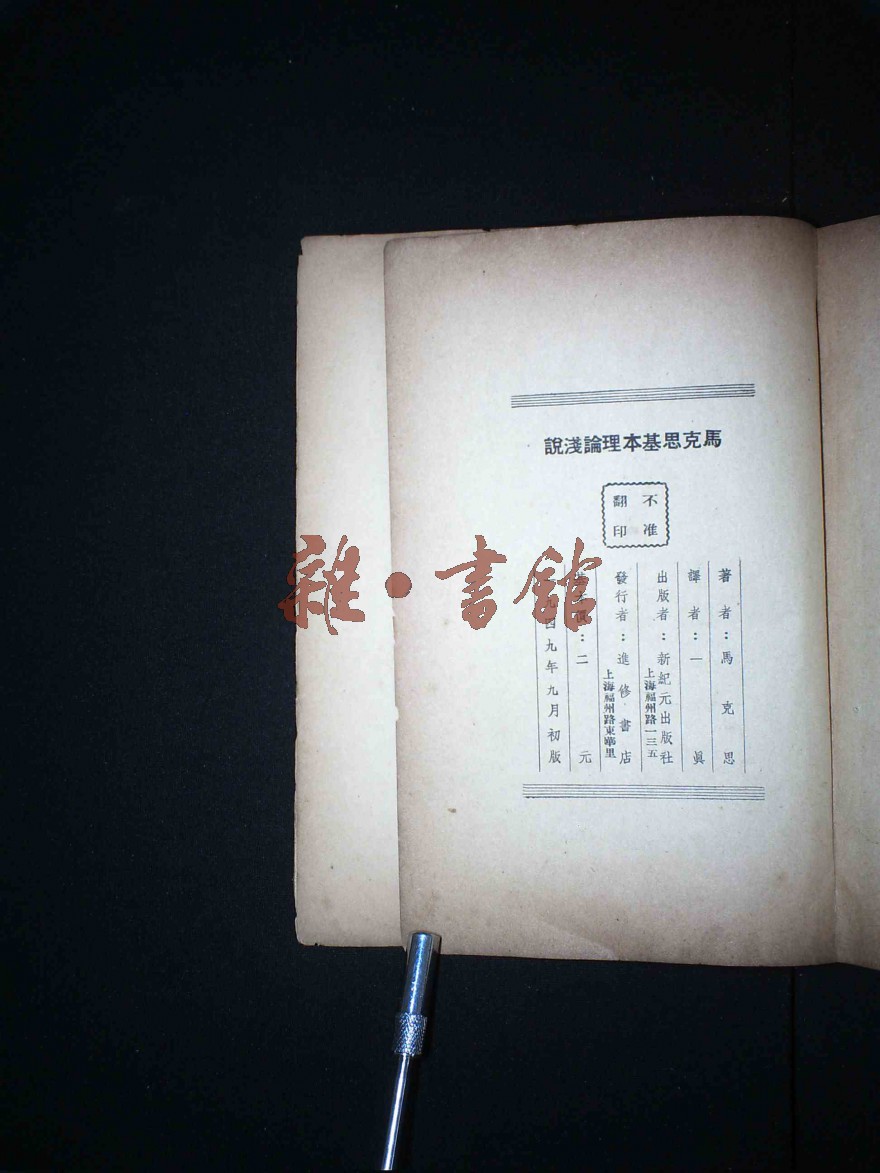 馬克思基本理論淺說
不准
翻印
著者：馬克思
譯者：一眞
出版者：新紀元出版社
上海福州路一三五
發行者：進修書店
上海福州路東華里
價：二元
四九年九月初版
雜·書館